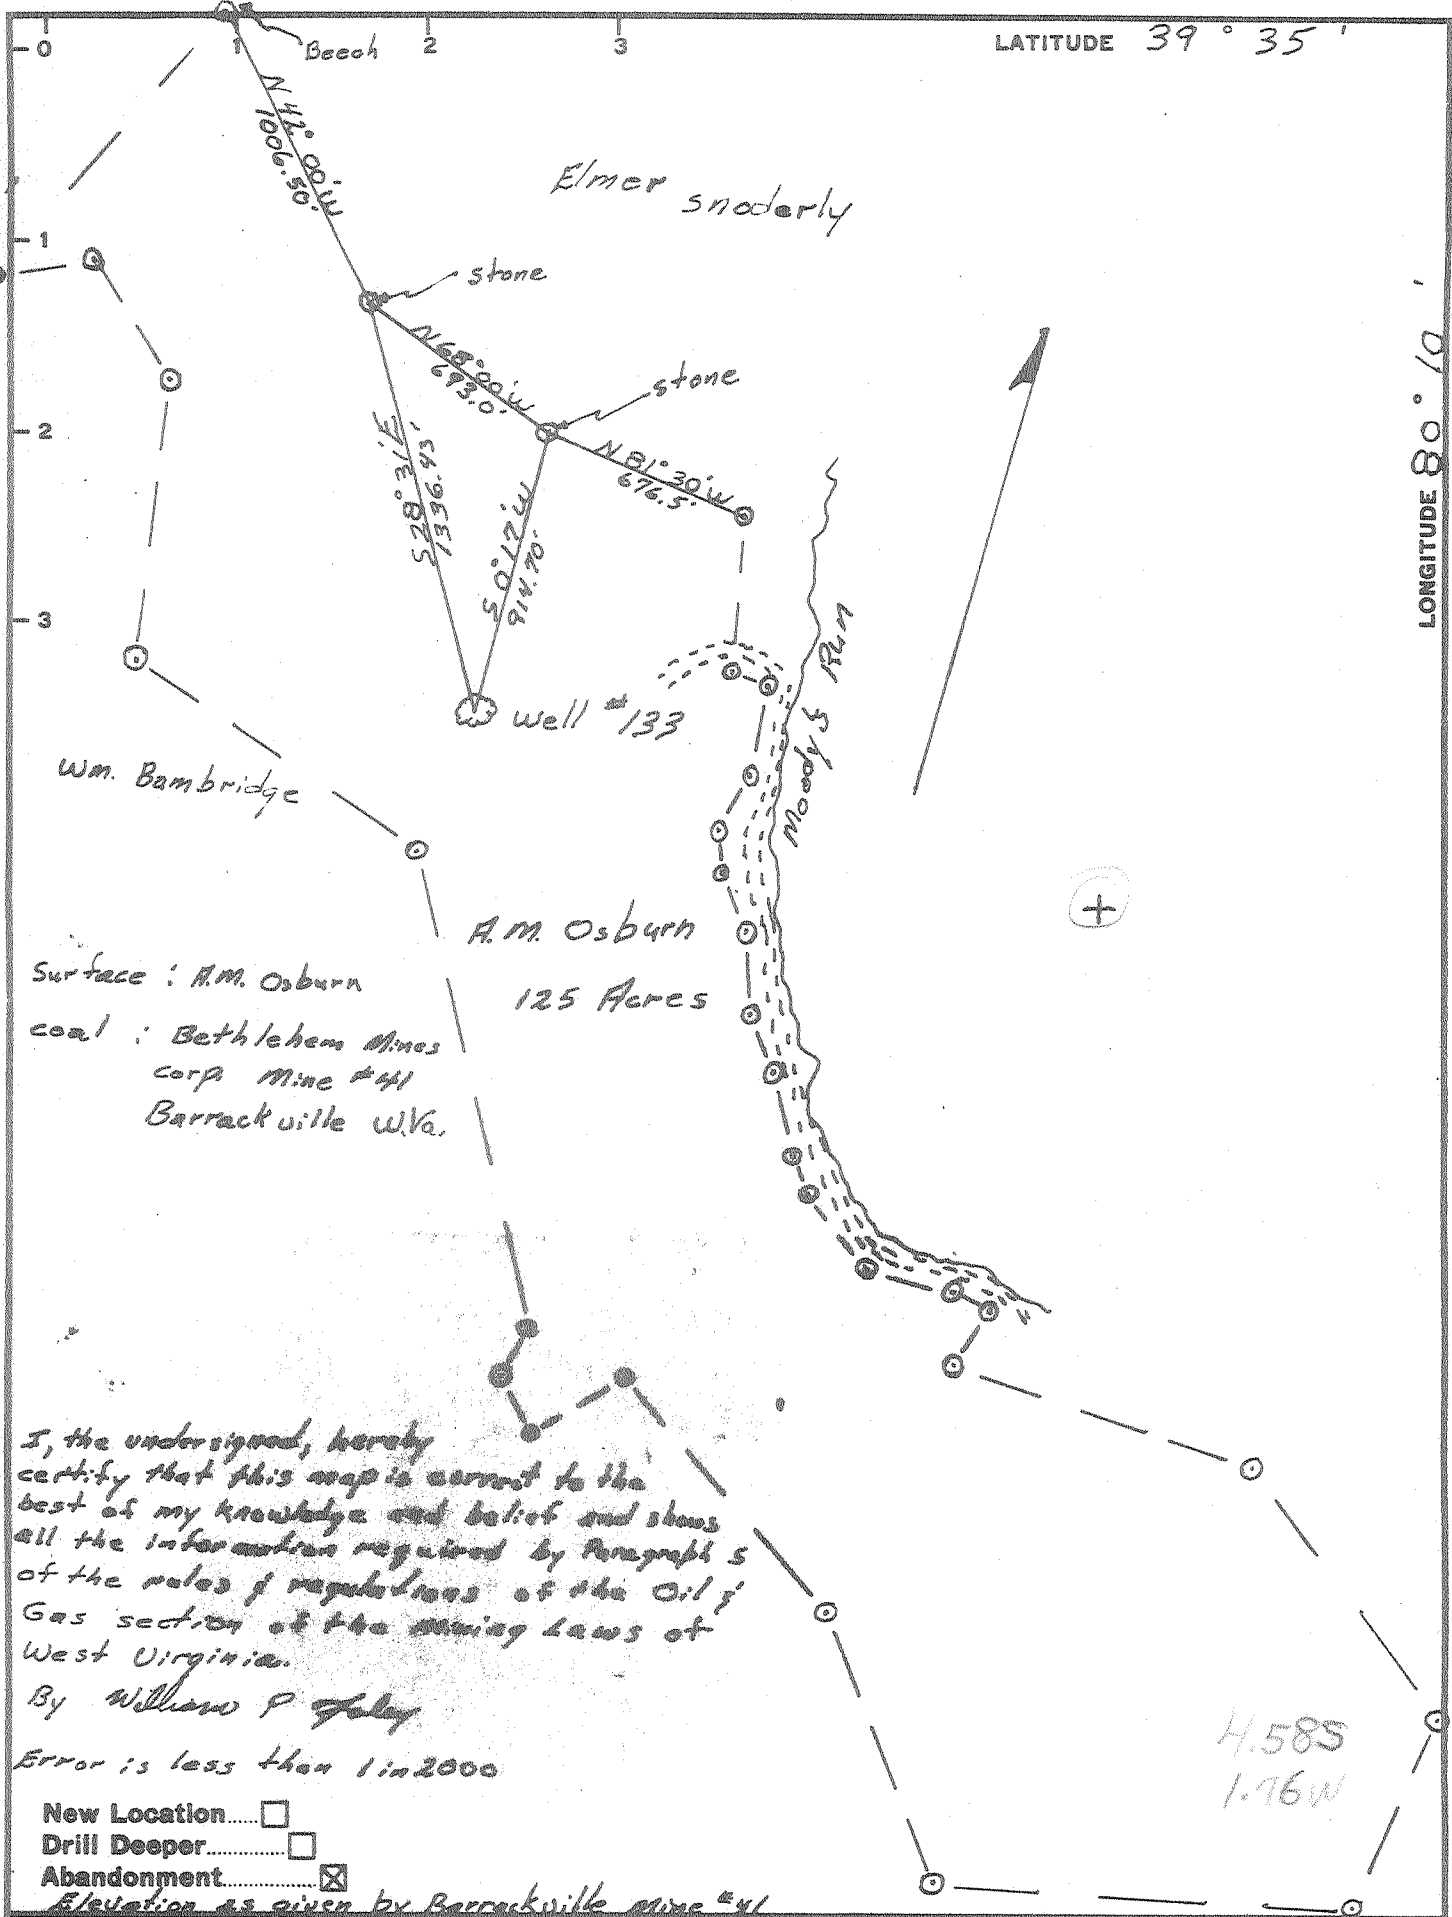 0
1
2
3
Beech
LATITUDE 39° 35'
N 42° 00' W
1006.50'
Elmer
snoderly
1
stone
N 68° 00' W
693.0'
stone
LONGITUDE 80° 10'
2
N 81° 30' W
676.5'
S 28° 31' E
1336.43'
S 0° 17' W
914.70'
3
Moody's Run
Well #133
Wm. Bambridge
+
A.M. Osburn
125 Acres
Surface : A.M. Osburn
coal : Bethlehem Mines
corp. Mine #41
Barrackville W.Va.
I, the undersigned, hereby
certify that this map is correct to the
best of my knowledge and belief and shows
all the information required by Paragraph 5
of the rules & regulations of the Oil &
Gas section of the mining laws of
West Virginia.
By William P
Error is less than 1 in 2000
4.58S
1.76W
New Location.....☐
Drill Deeper.............☐
Abandonment..............☒
Elevation as given by Barrackville mine #41